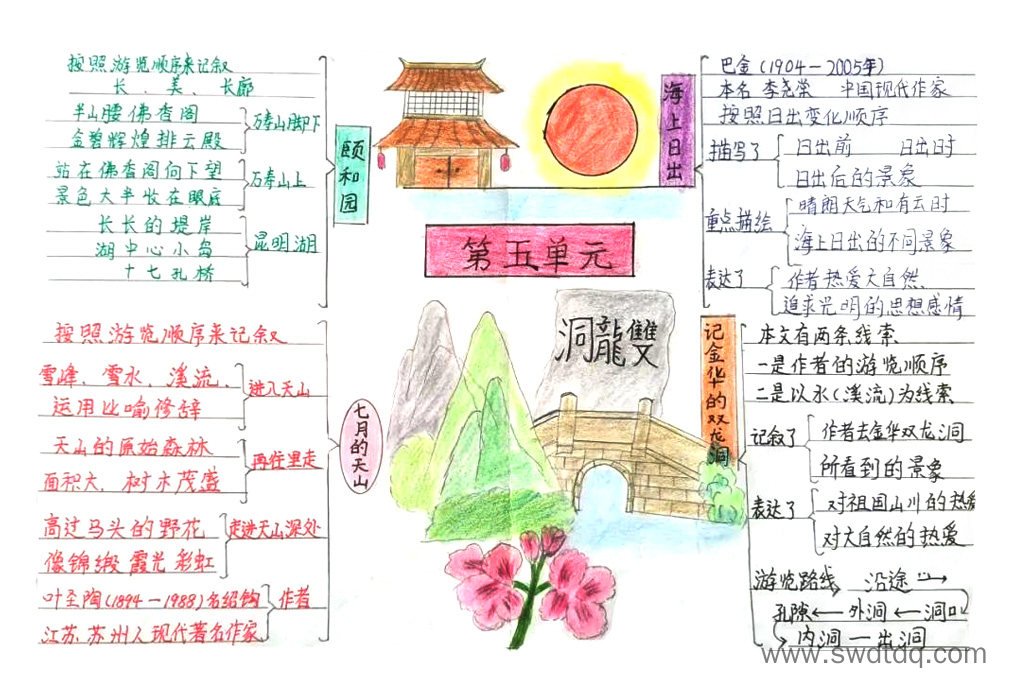 第五单元
洞龍雙
颐和园
按照游览顺序来记叙
长、美、长廊
半山腰佛香阁
金碧辉煌排云殿
万寿山脚下
站在佛香阁向下望
景色大半收在眼底
万寿山上
长长的堤岸
湖中心小岛
十七孔桥
昆明湖
海上日出
巴金(1904—2005年)
本名李尧棠 中国现代作家
按照日出变化顺序
描写了
日出前 日出时
日出后的景象
重点描绘
晴朗天气和有云时
海上日出的不同景象
表达了
作者热爱大自然、
追求光明的思想感情
七月的天山
按照游览顺序来记叙
雪峰、雪水、溪流、
运用比喻修辞
进入天山
天山的原始森林
面积大、树木茂盛
再往里走
高过马头的野花
像锦缎 霞光 彩虹
走进天山深处
叶圣陶(1894—1988)名绍钧
江苏苏州人现代著名作家
作者
记金华的双龙洞
本文有两条线索
一是作者的游览顺序
二是以水(溪流)为线索
记叙了
作者去金华双龙洞
所看到的景象
表达了
对祖国山川的热爱
对大自然的热爱
游览路线 沿途→
孔隙←外洞←洞口
内洞—出洞
www.swdtdq.com